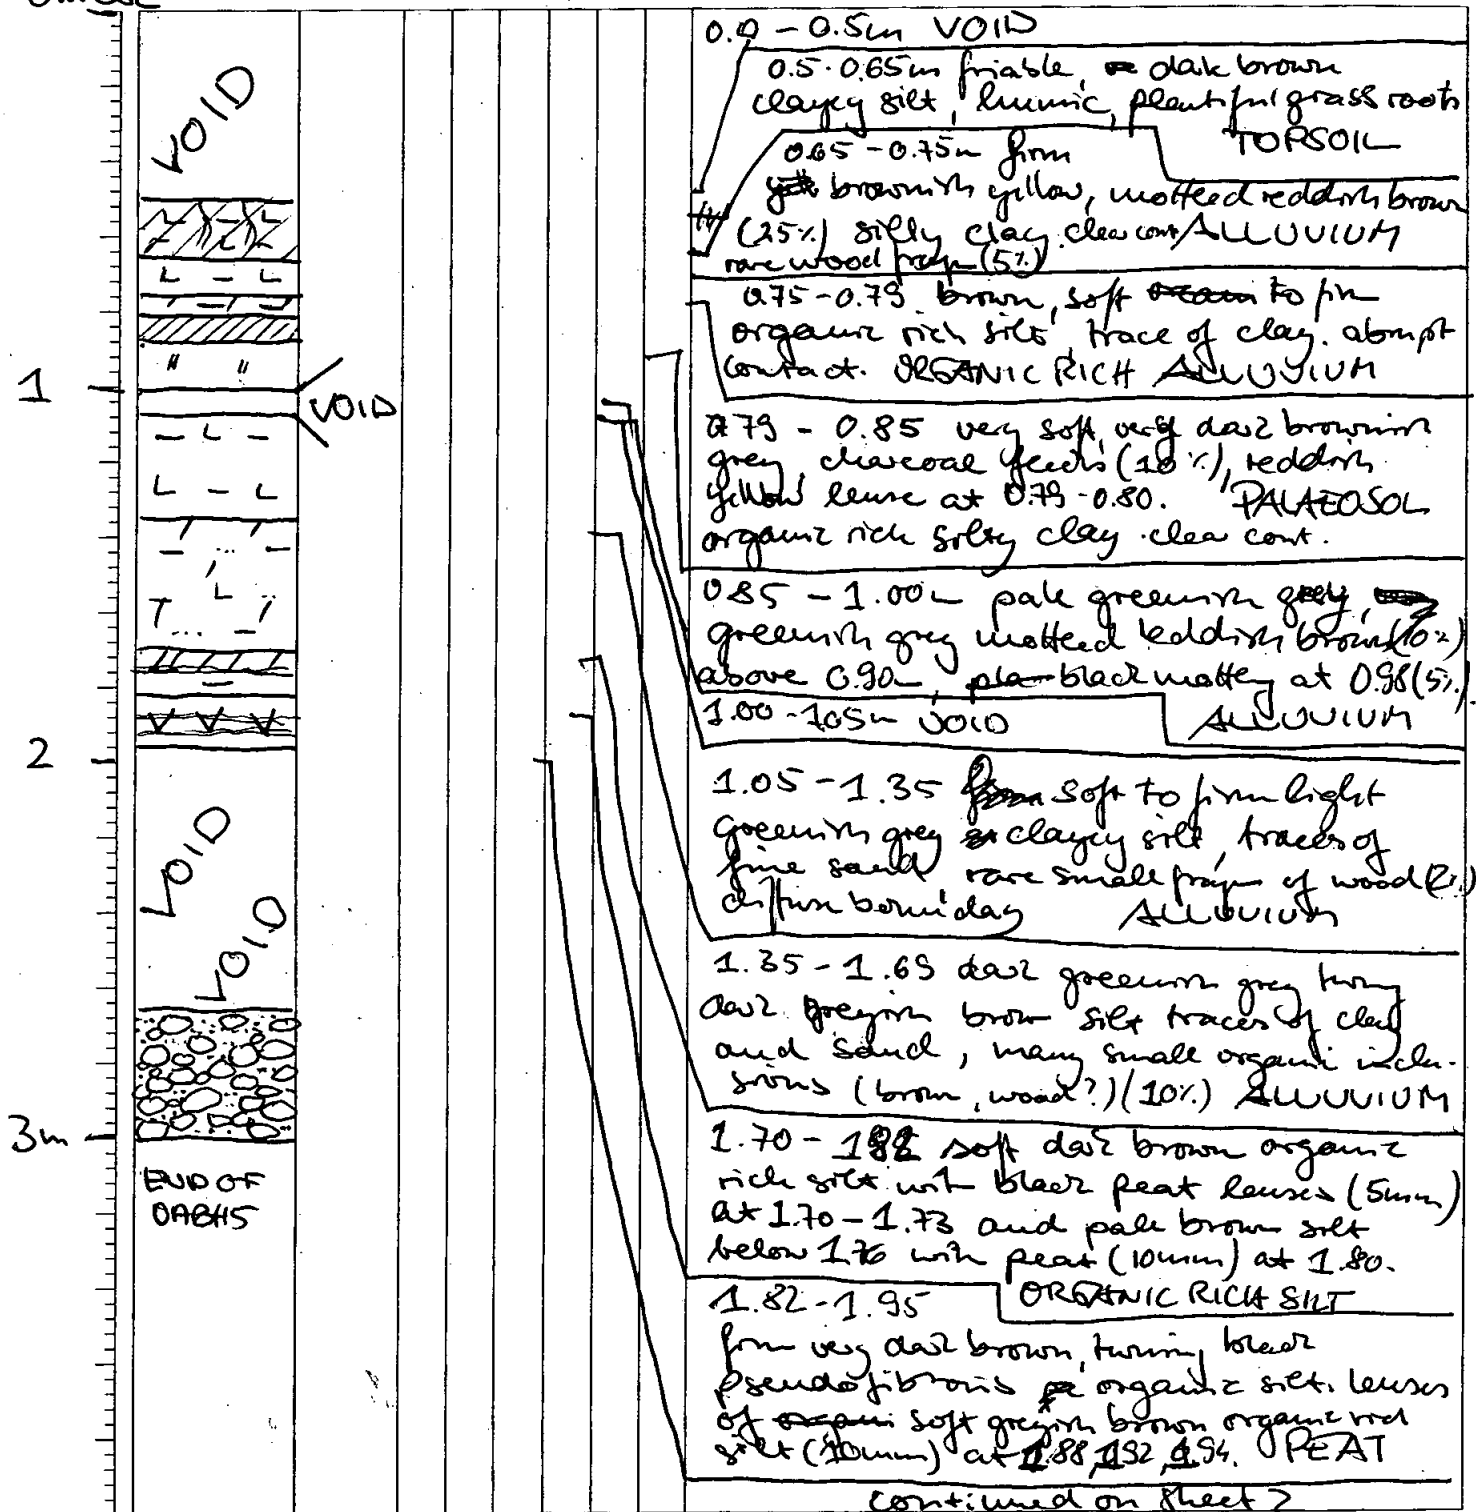 VOID
1
VOID
2
VOID
VOID
3m
END OF
OABH5
0.0 - 0.5m VOID
0.5-0.65m friable, dark brown
clayey silt, humic, plentiful grass roots
TOPSOIL
0.65 - 0.75m firm
brownish yellow, mottled reddish brown
(25%) silty clay. clear cont. ALLUVIUM
rare wood fragm (5%)
0.75-0.79 brown, soft to firm
organic rich silt, trace of clay. abrupt
contact. ORGANIC RICH ALLUVIUM
0.79 - 0.85 very soft, very dark brownish
grey, charcoal flecks (10%), reddish
yellow lense at 0.79-0.80. PALAEOSOL
organic rich silty clay. clear cont.
0.85 - 1.00m pale greenish grey,
greenish grey mottled reddish brown (10%)
above 0.90m, black mottling at 0.98 (5%)
1.00-1.05m VOID ALLUVIUM
1.05 - 1.35 soft to firm light
greenish grey clayey silt, traces of
fine sand rare small fragm of wood (2%)
diffuse boundary ALLUVIUM
1.35 - 1.69 dark greenish grey turning
dark greyish brown silt traces of clay
and sand, many small organic inclu-
sions (brown, wood?) (10%) ALLUVIUM
1.70 - 1.82 soft dark brown organic
rich silt with black peat lenses (5mm)
at 1.70-1.73 and pale brown silt
below 1.76 with peat (10mm) at 1.80.
ORGANIC RICH SILT
1.82-1.95
firm very dark brown, turning black
pseudofibrous organic silt. lenses
of soft greyish brown organic rich
silt (10mm) at 1.88, 1.92, 1.94. PEAT
continued on sheet 2